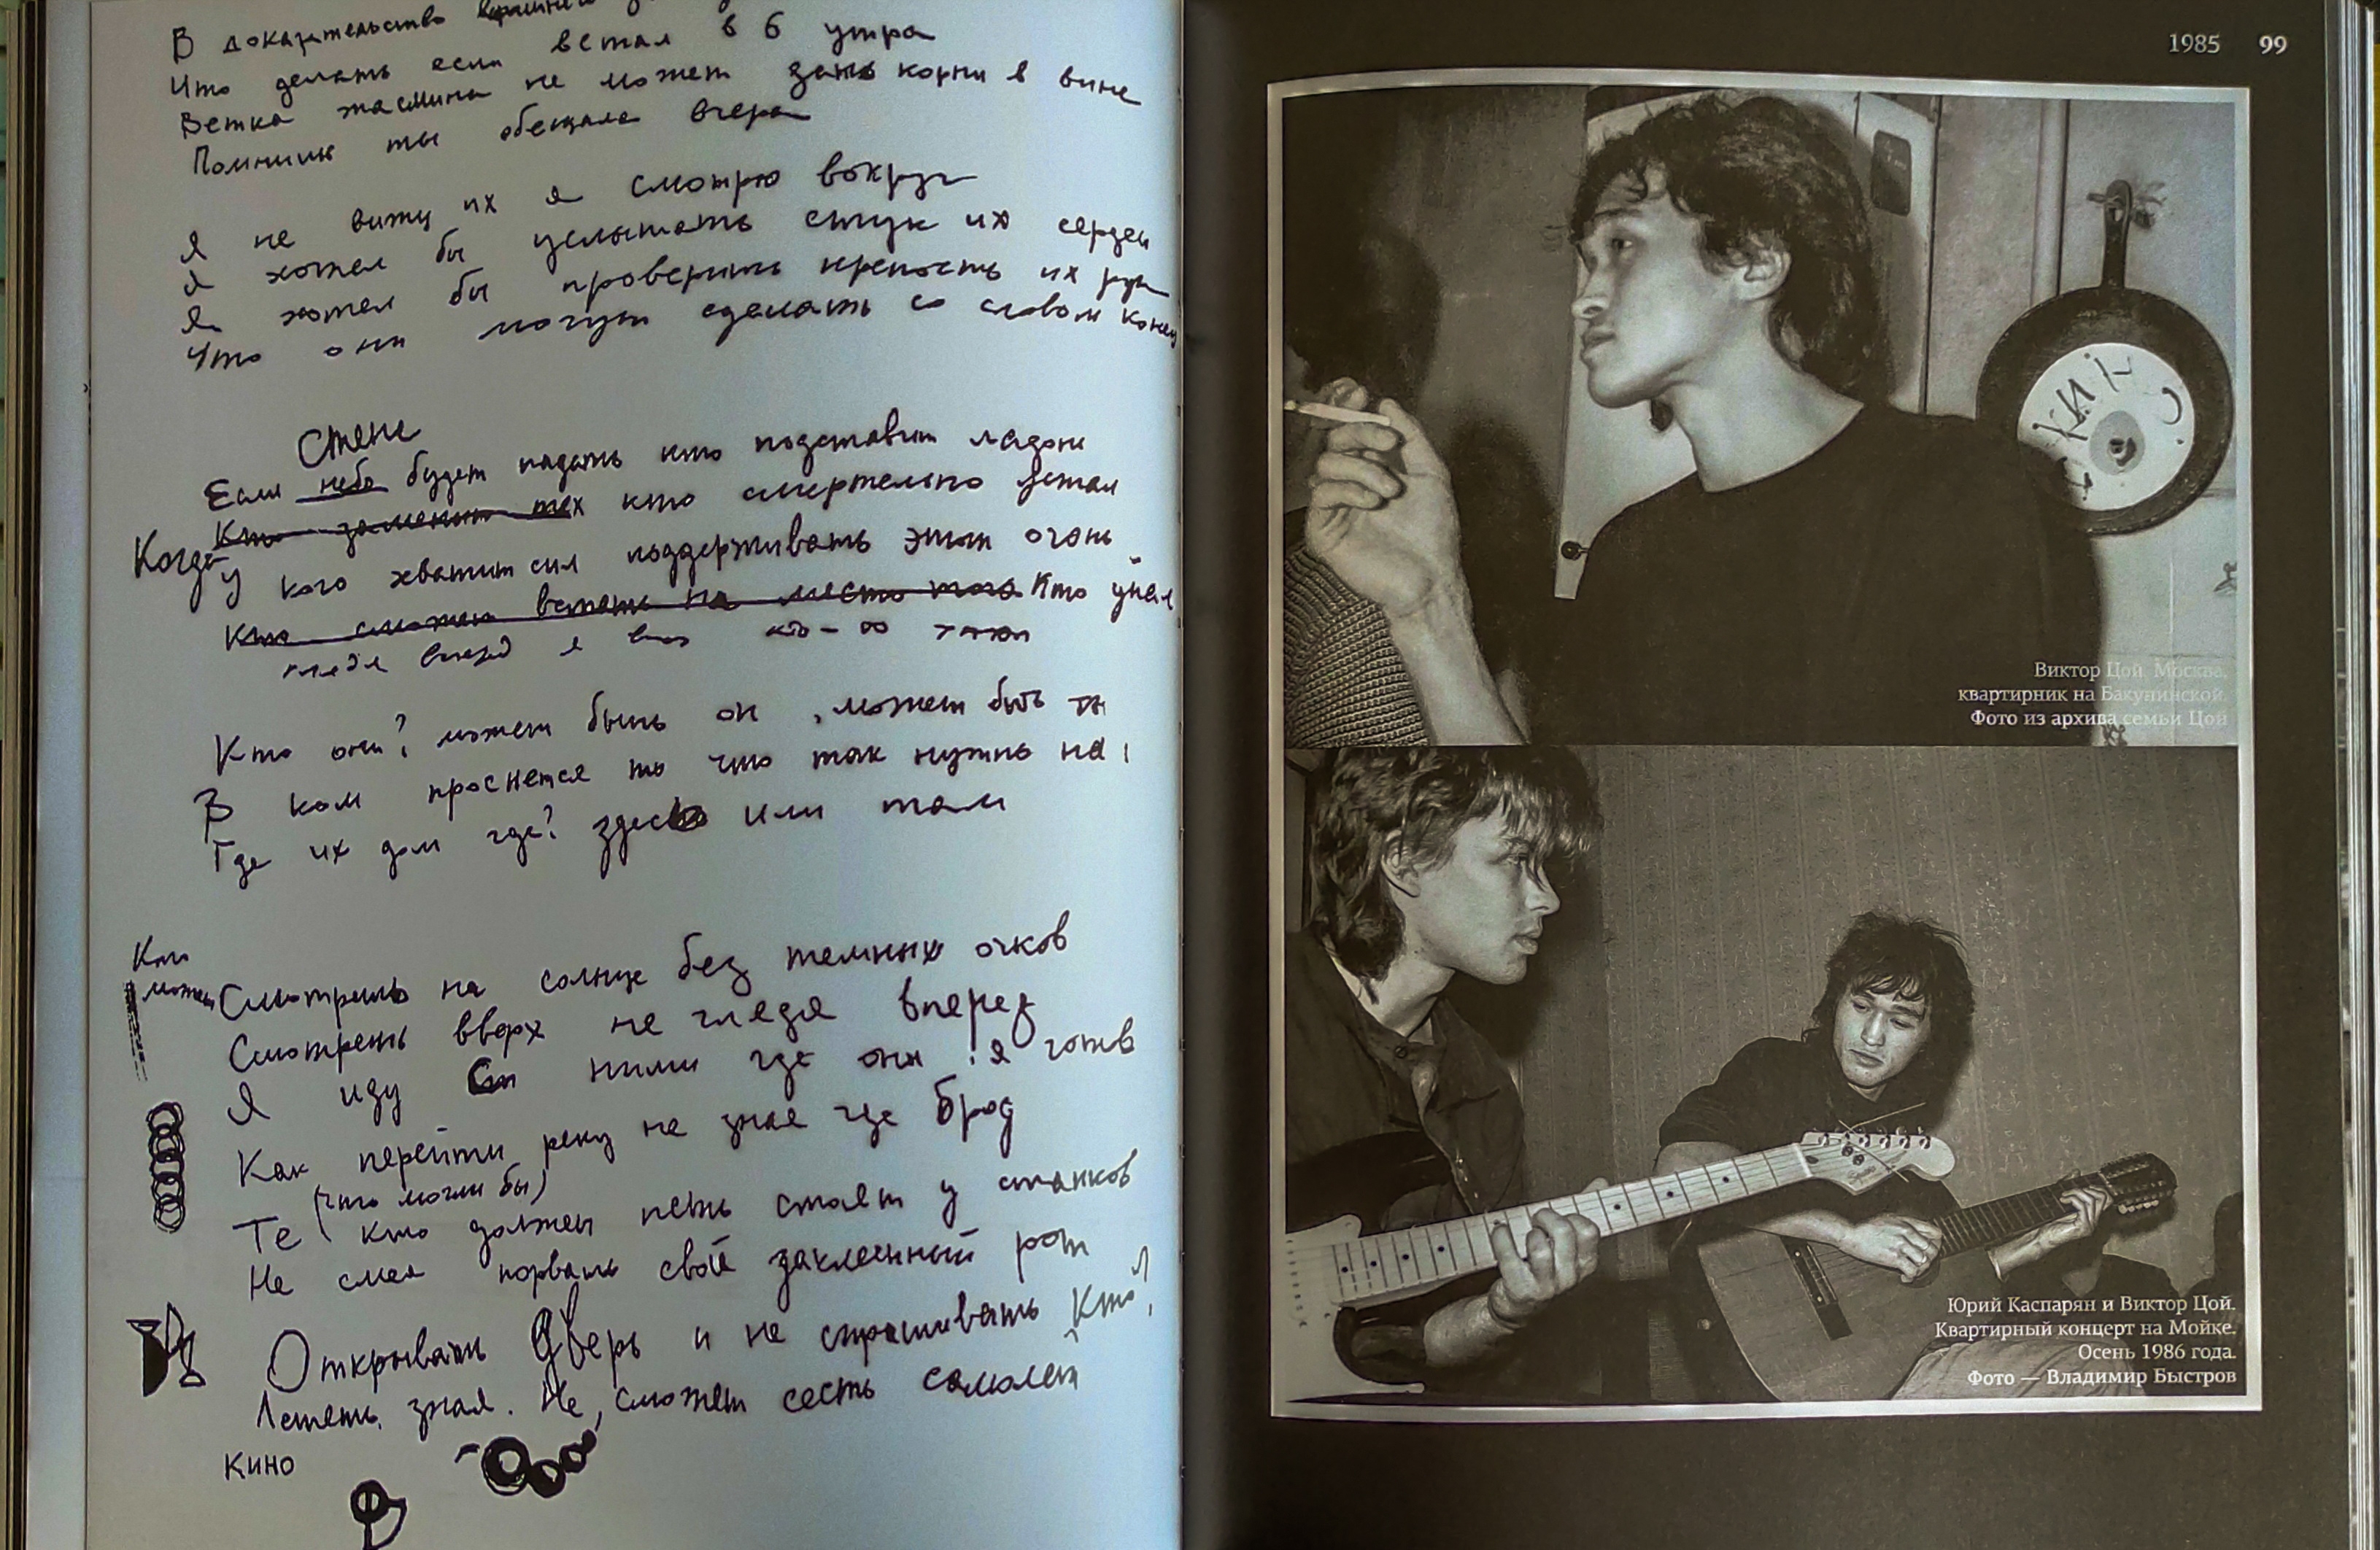 В доказательство
Что делать если встал в 6 утра
Ветка жасмина не может дать корни в вине
Помнишь ты обещала вчера
Я не вижу их я смотрю вокруг
Я хотел бы услышать стук их сердец
Я хотел бы проверить крепость их рук
Что они могут сделать со словом конец
Стене
Если небо будет падать кто подставит ладони
Кто заменит тех кто смертельно устал
Когда
У кого хватит сил поддерживать этот огонь
Кто сможет встать на место того Кто упал
глядя вперед я
Кто они? может быть он, может быть ты
В ком проснется то что так нужно на
Где их дом где? здесь или там
Кто
может Смотреть на солнце без темных очков
Смотреть вверх не глядя вперед
Я иду с ними где они я готов
Как перейти реку не зная где брод
(что могли бы)
Те кто должен петь стоят у станков
Не смея порвать свой заклеенный рот
Открывать дверь и не спрашивать Кто?
Лететь, зная. Не, сможет сесть самолет
КИНО
1985 99
КИНО
Виктор Цой. Москва,
квартирник на Бакунинской.
Фото из архива семьи Цой
Юрий Каспарян и Виктор Цой.
Квартирный концерт на Мойке.
Осень 1986 года.
Фото — Владимир Быстров